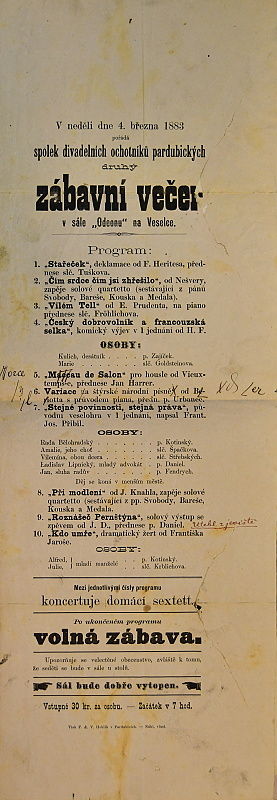 V neděli dne 4. března 1883
pořádá
spolek divadelních ochotníků pardubických
druhý
zábavní večer
v sále „Odeonu" na Veselce.
Program:
1. „Stařeček", deklamace od F. Heritesa, před-
nese slč. Tuškova.
2. „Čím srdce čím jsi zhřešilo", od Nešvery,
zapěje solové quartetto (sestávající z pánů
Svobody, Bareše, Kouska a Medala).
3. „Vilém Tell" od E. Prudenta, na piano
přednese slč. Fröhlichova.
4. „Český dobrovolník a francouzská
selka", komický výjev v 1 jednání od H. F.
OSOBY:
Kulich, desátník . . . . p. Zajíček.
Marie . . . . slč. Goldsteinova.
5. de Salon" pro housle od Vieux-
tempse, přednese Jan Harrer.
6. Variace na štýrské národní písně od
s průvodem piana, předn. p. Urbanec.
7. „Stejné povinnosti, stejná práva", pů-
vodní veselohra v 1 jednání, napsal Frant.
Jos. Přibil.
OSOBY:
Rada Bělohradský . . . p. Kotínský.
Amalie, jeho choť . . . slč. Špačkova.
Vilemína, obou dcera . . . slč. Stříbrských.
Ladislav Lipnický, mladý advokát . . p. Daniel.
Jan, sluha radův . . . p. Fendrych.
Děj se koná v menším městě.
8. „Při modlení" od J. Knahla, zapěje solové
quartetto (sestávající z pp. Svobody, Bareše,
Kouska a Medala).
9. „Roznášeč Pernštýna", solový výstup se
zpěvem od J. D., přednese p. Daniel.
10. „Kdo umře", dramatický žert od Františka
Jaroše.
OSOBY:
Alfred, mladí manželé . . p. Kotínský.
Julie, slč. Krblichova.
Mezi jednotlivými čísly programu
koncertuje domácí sextett.
Po ukončeném programu
volná zábava.
Upozorňuje se velectěné obecenstvo, zvláště k tomu,
že sedětí se bude v sále u stolů.
Sál bude dobře vytopen.
Vstupné 30 kr. za osobu. — Začátek v 7 hod.
Tisk F. & V. Hoblík v Pardubicích. — Nákl. vlast.